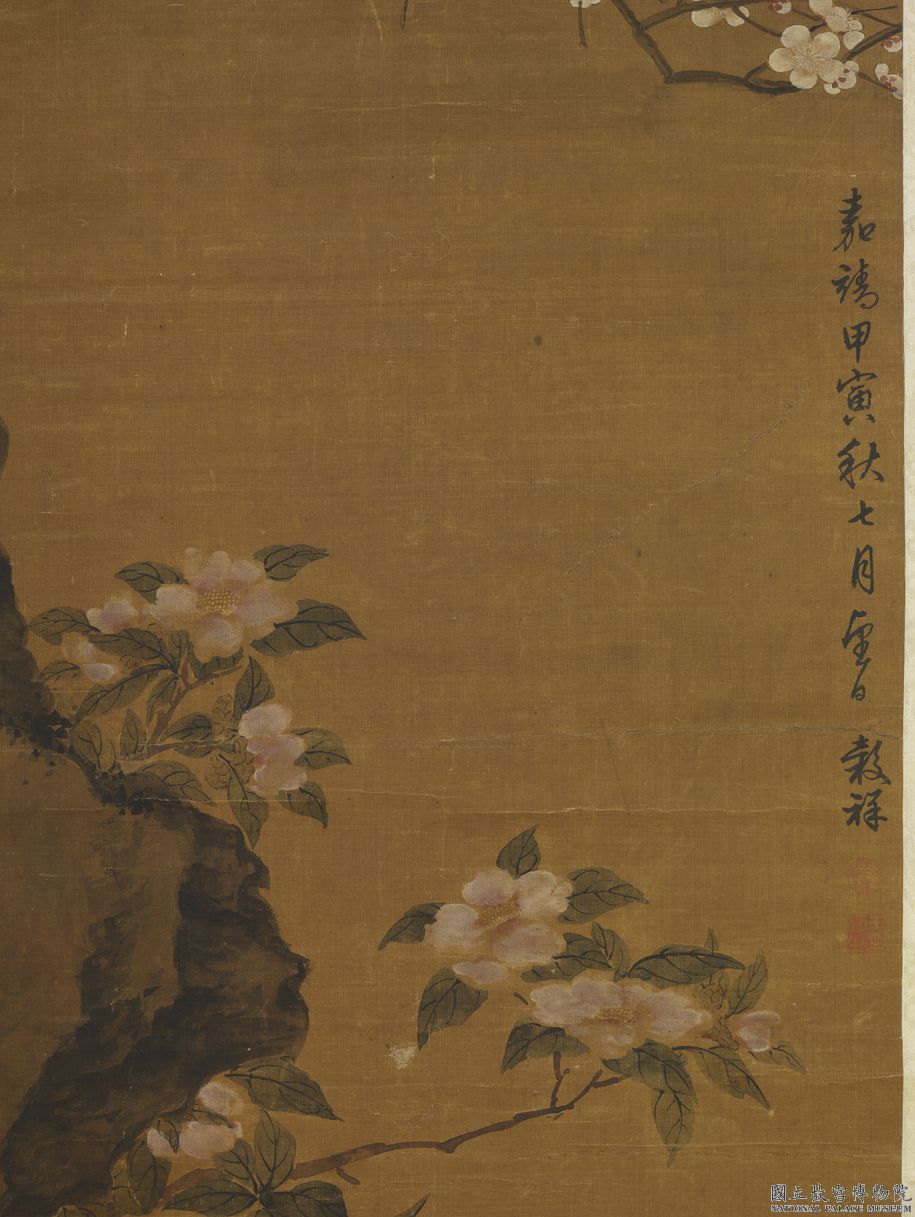 嘉靖甲寅秋七月望日 穀祥
國立故宮博物院
NATIONAL PALACE MUSEUM